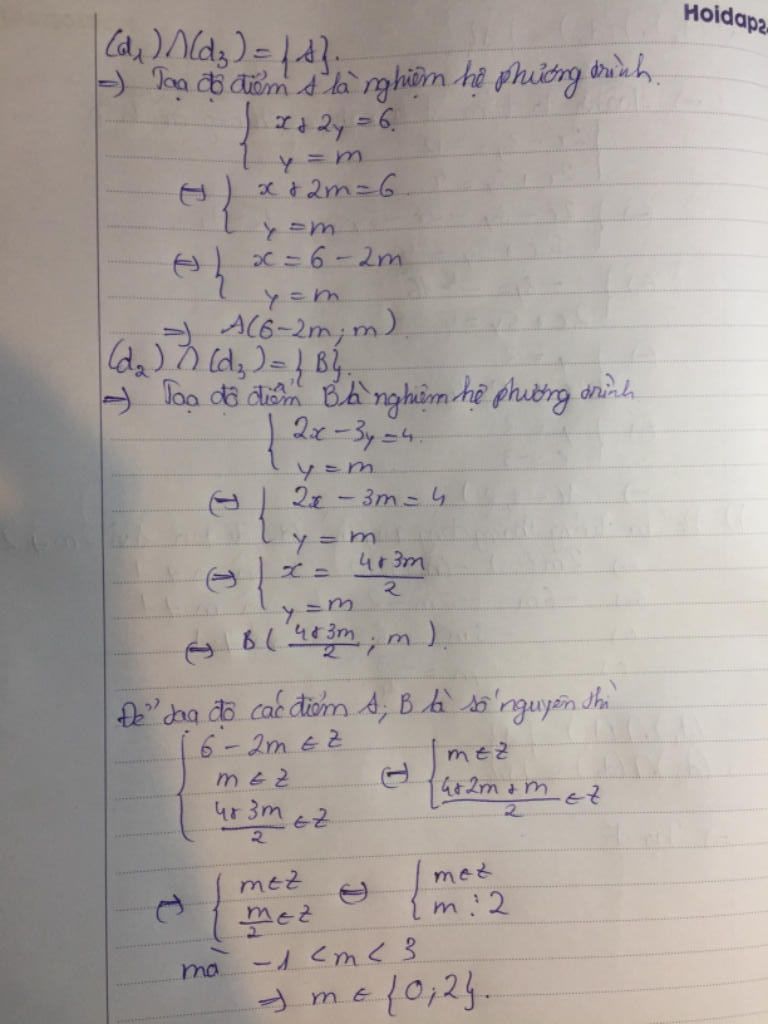 Hoidap2
(d₁) ∩ (d₃) = {A}.
=> Toạ độ điểm A là nghiệm hệ phương trình.
{ x + 2y = 6.
y = m
<=> { x + 2m = 6
y = m
<=> { x = 6 - 2m
y = m
=> A(6-2m; m)
(d₂) ∩ (d₃) = {B}.
=> Toạ độ điểm B là nghiệm hệ phương trình
{ 2x - 3y = 4
y = m
<=> { 2x - 3m = 4
y = m
<=> { x = (4+3m)/2
y = m
<=> B( (4+3m)/2 ; m).
Để toạ độ các điểm A; B là số nguyên thì
{ 6 - 2m ∈ Z
m ∈ Z <=> { m ∈ Z
(4+3m)/2 ∈ Z (4+2m+m)/2 ∈ Z
<=> { m ∈ Z <=> { m ∈ Z
m/2 ∈ Z m ⋮ 2
mà -1 < m < 3
=> m ∈ {0; 2}.